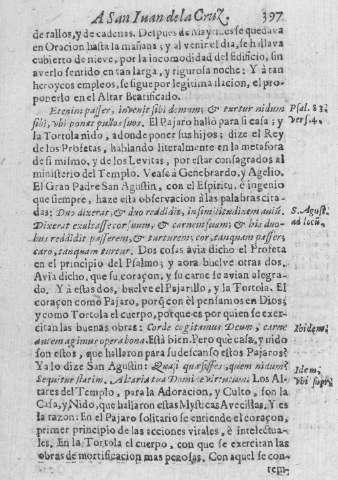 A San Iuan de la Cruz. 397
de rallos, y de cadenas. Despues de Maytines se quedava
en Oracion hasta la mañana; y al venir el dia, se hallava
cubierto de nieve, por la incomodidad del Edificio, sin
averlo sentido en tan larga, y rigurosa noche: Y à tan
heroycos empleos, se sigue por legitima ilacion, el po-
nerlo en el Altar Beatificado.
Etenim passer, invenit sibi domum, & turtur nidum
sibi, vbi ponat pullos suos. El Pajaro hallò para si casa; y
la Tortola nido, adonde poner sus hijos; dize el Rey
de los Profetas, hablando literalmente en la metafora
de si mismo, y de los Levitas, por estar consagrados al
ministerio del Templo. Vease à Genebrardo, y Agelio.
El Gran Padre San Agustin, con el Espiritu, è ingenio
que siempre, haze esta observacion à las palabras cita-
das: Duo dixerat, & duo reddidit, in similitudinem aviũ.
Dixerat exultasse cor suum, & carnem suam; & his duo-
bus reddidit passerem, & turturem: cor, tanquam passer;
caro, tanquam turtur. Dos cosas avia dicho el Profeta
en el principio del Psalmo; y aora buelve otras dos.
Avia dicho, que su coraçon, y su carne se avian alegra-
do. Y à estas dos, buelve el Pajarillo, y la Tortola. El
coraçon como Pajaro, porq̃ con èl pensamos en Dios;
y como Tortola el cuerpo, porque es por quien se exer-
citan las buenas obras: Corde cogitamus Deum, carne
autem agimus opera bona. Està bien. Pero què casa, y nido
son estos, que hallaron para su descanso estos Pajaros?
Ya lo dize San Agustin: Quasi quæsisses, quem nidum?
Sequitur statim. Altaria tua Domine virtutum. Los Al-
tares del Templo, para la Adoracion, y Culto, son la
Casa, y Nido, que hallaron estas Mysticas Avecillas. Y es
la razon: En el Pajaro solitario se entiende el coraçon,
primer principio de las acciones vitales, è intelectua-
les. En la Tortola el cuerpo, con que se exercitan las
obras de mortificacion mas penosas. Con aquel se con-
tem-
Psal. 83.
vers. 4.
S. Agust.
ad locũ.
Ibidem.
Idem,
vbi supr.